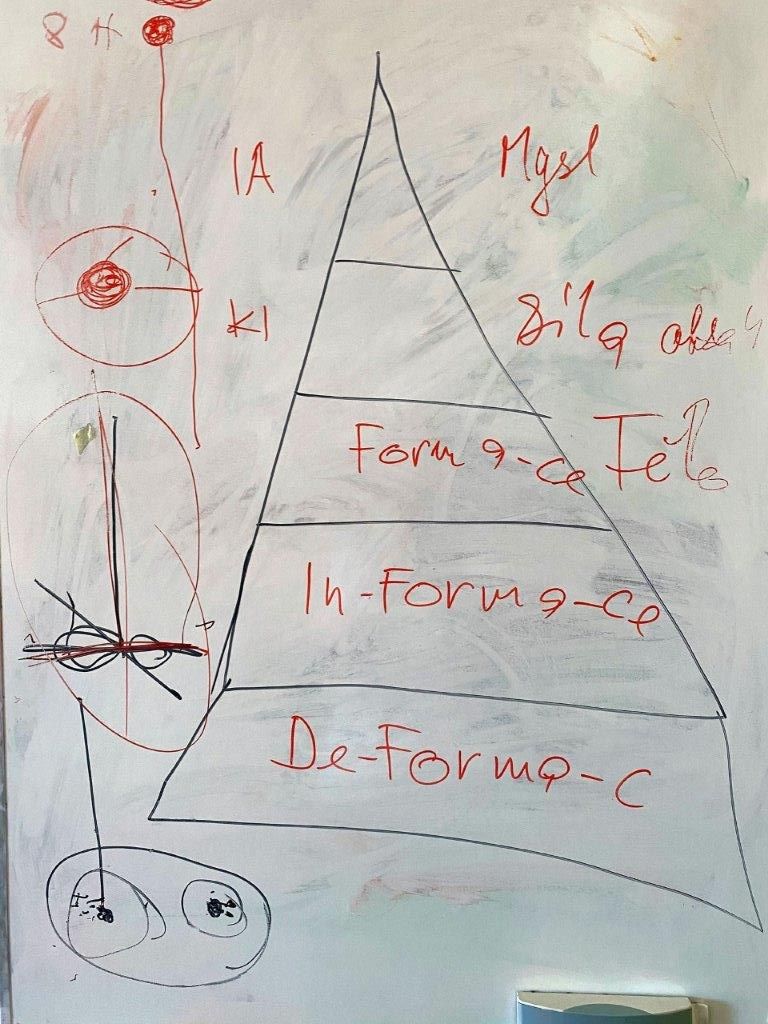 8 H
IA Mysl
KI Síla obsa
Forma-ce Tělo
In-Forma-ce
De-Forma-c